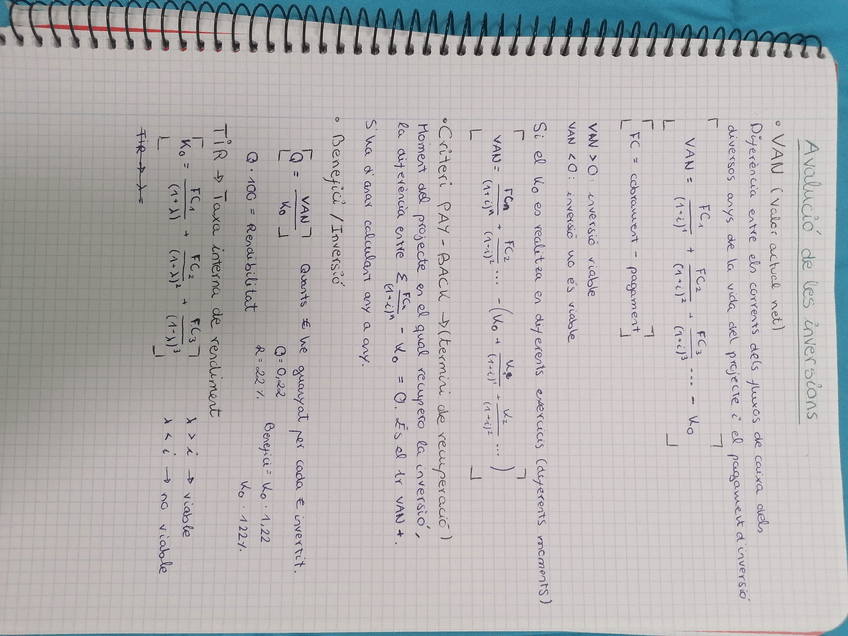 Avalució de les inversions
• VAN (Valor actual net)
Diferència entre els corrents dels fluxos de caixa dels
diversos anys de la vida del projecte i el pagament d'inversió
VAN = FC1/(1+i)^1 + FC2/(1+i)^2 + FC3/(1+i)^3 ... - K0
FC = cobrament - pagament
VAN > 0 inversió viable
VAN < 0: inversió no és viable
Si el K0 es realitza en diferents exercicis (diferents moments)
VAN = FCn/(1+i)^n + FC2/(1+i)^2 ... - (K0 + K1/(1+i)^1 + K2/(1+i)^2 ...)
• Criteri PAY-BACK → (termini de recuperació)
Moment del projecte en el qual recupero la inversió,
la diferència entre Σ FC1/(1+i)^n - K0 = 0. És el 1r VAN +.
S'ha d'anar calculant any a any.
• Benefici / Inversió
Q = VAN/K0 Quants € he guanyat per cada € invertit.
Q = 0,22 Benefici = K0 · 1,22
Q · 100 = Rendibilitat R = 22% K0 · 122%
TIR → Taxa interna de rendiment
K0 = FC1/(1+λ) + FC2/(1+λ)^2 + FC3/(1-λ)^3 λ > i → viable
λ < i → no viable
TIR → λ =